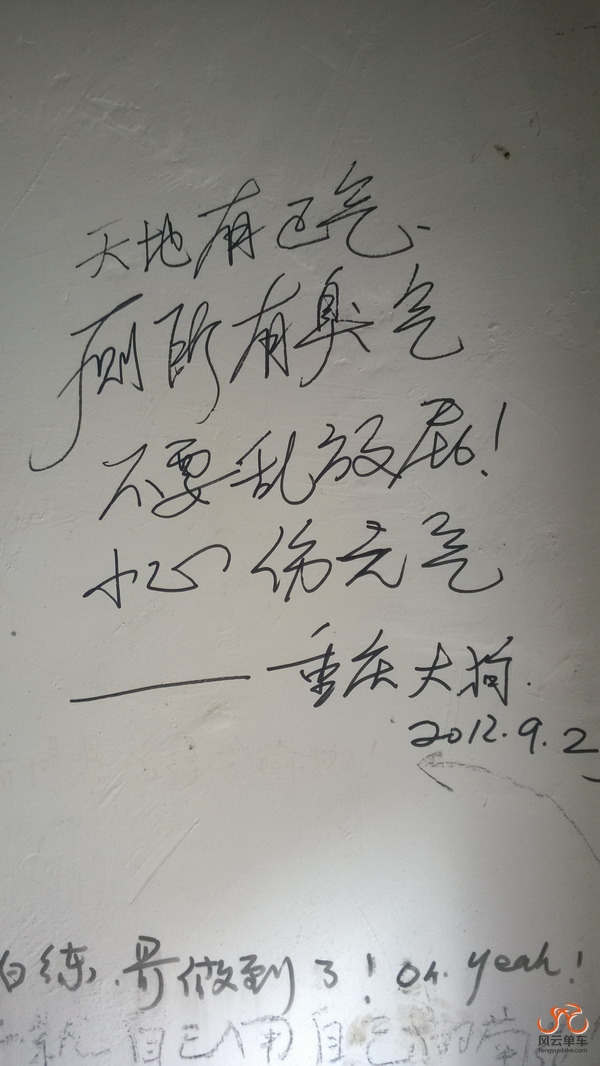 天地有正气
厕所有臭气
不要乱放屁！
小心伤元气
——重庆大狗.
2012.9.2
白练，哥做到了！oh. yeah！
自己用自己的
风云单车
fengyunbike.com